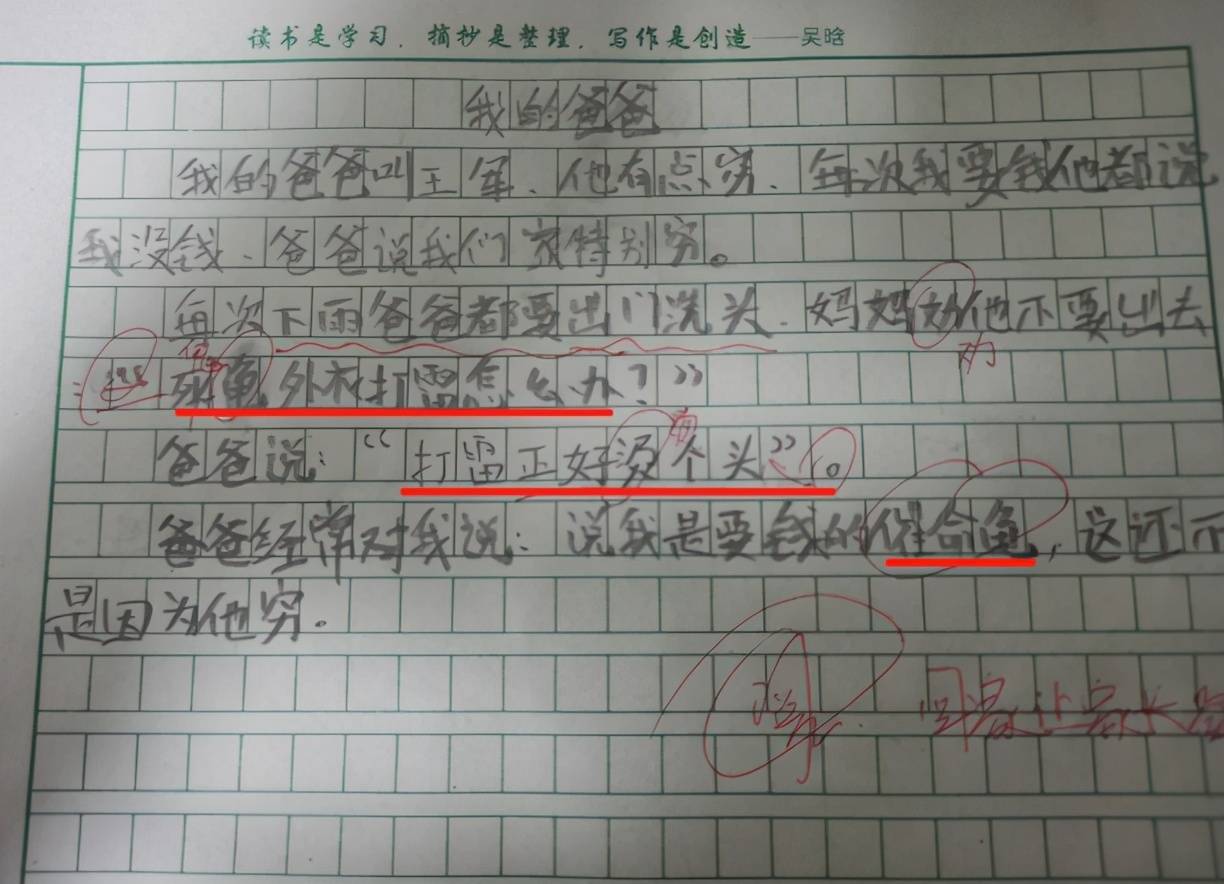 读书是学习，摘抄是整理，写作是创造——吴晗
我的爸爸
我的爸爸叫王军、他有点穷、每次我要钱他都说
我没钱、爸爸说我们家特别穷。
每次下雨爸爸都要出门洗头、妈妈劝他不要出去
外衣打雷怎么办？”
爸爸说：“打雷正好烫个头”。
爸爸经常对我说：说我是要钱的催命龟，这还不
是因为他穷。
回家让家长